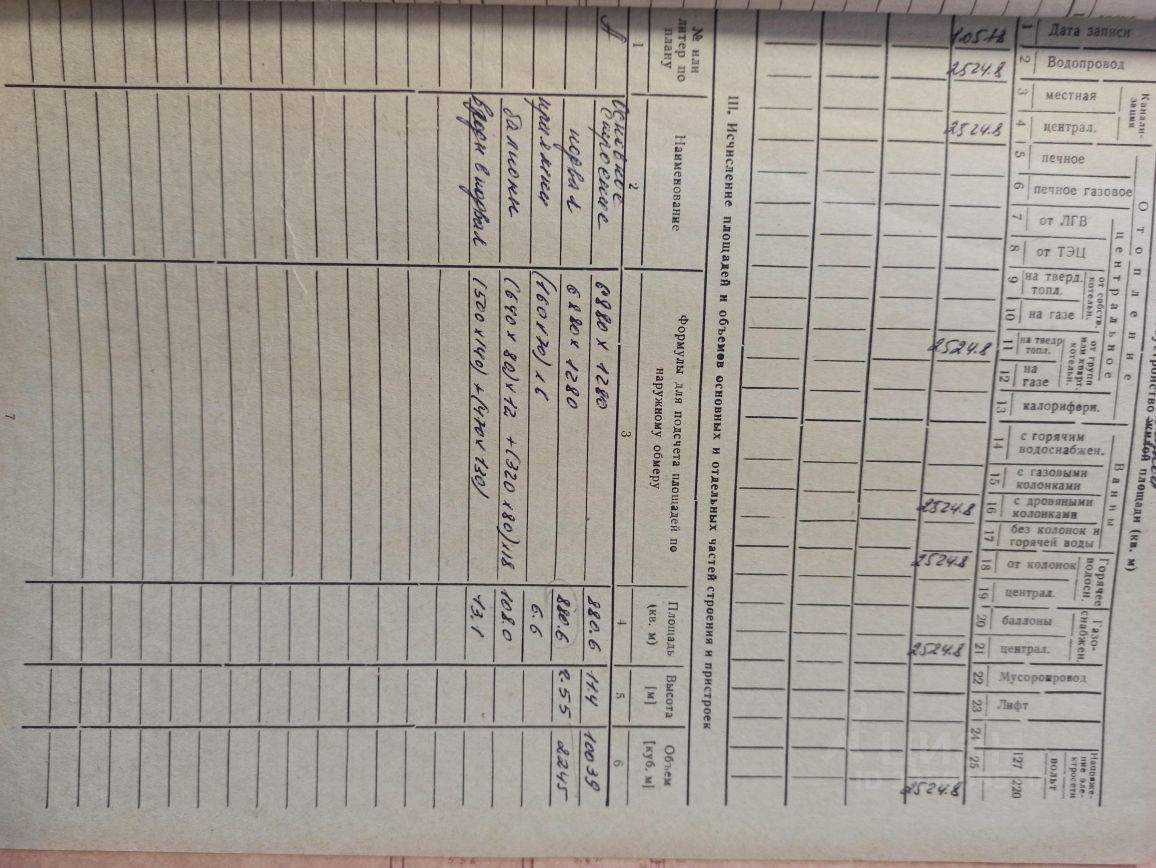 устройство жилой площади (кв. м)
Дата записи
Водопровод
Канали-
зация
местная
централ.
Отопление
печное
печное газовое
центральное
от АГВ
от ТЭЦ
от собств.
котельн.
на тверд.
топл.
на газе
от групп
или кварт.
котельн.
на тверд
топл.
на
газе
калорифери.
Ванны
с горячим
водоснабжен.
с газовыми
колонками
с дровяными
колонками
без колонок и
горячей воды
Горячее
водосн.
от колонок
централ.
Газо-
снабжен.
баллоны
централ.
Мусоропровод
Лифт
Напояже-
ние эле-
ктросети
вольт
127
220
1 2 3 4 5 6 7 8 9 10 11 12 13 14 15 16 17 18 19 20 21 22 23 24 25
2524.8 2524.8 2524.8 2524.8 2524.8 2524.8 2524.8
III. Исчисление площадей и объемов основных и отдельных частей строения и пристроек
№ или
литер по
плану
Наименование
Формулы для подсчета площадей по
наружному обмеру
Площадь
(кв. м)
Высота
[м]
Объем
[куб. м]
1 2 3 4 5 6
А Основное
строение 6880 x 1280 880.6 11.4 10039
подвал 6880 x 1280 880.6 2.55 2245
приямки (160x70)x6 6.6
балконы (640x80)x12 +(320x80)x18 108.0
вход в подвал (500x140)+(470x130) 13.1
7